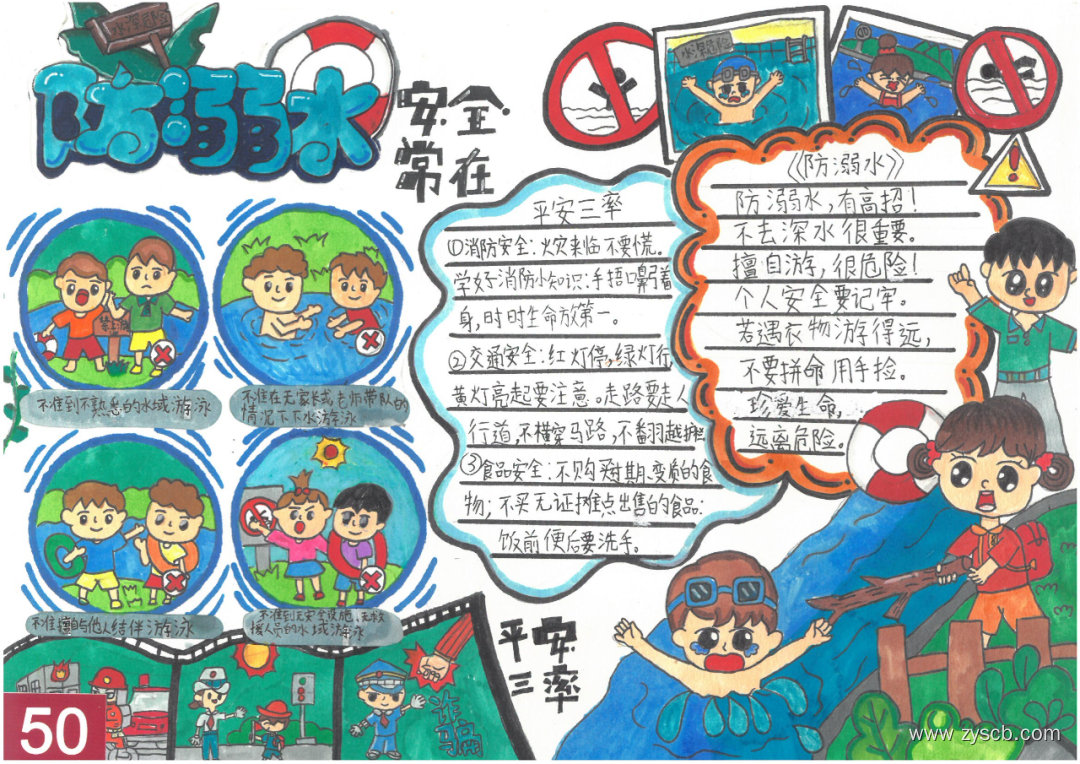 水深危险
防溺水
安全
常在
水深危险
《防溺水》
防溺水,有高招!
不去深水很重要。
擅自游,很危险!
个人安全要记牢。
若遇衣物游得远,
不要拼命用手捡。
珍爱生命,
远离危险。
平安三率
①消防安全:火灾来临不要慌。
学好消防小知识:手捂口鼻躬着
身,时时生命放第一。
②交通安全:红灯停,绿灯行,
黄灯亮起要注意。走路要走人
行道,不横穿马路,不翻越护栏
③食品安全:不购买过期.变质的食
物;不买无证摊点出售的食品;
饭前便后要洗手。
不准到不熟悉的水域游泳
不准在无家长或老师带队的
情况下下水游泳
不准擅自与他人结伴游泳
不准到无安全设施、无救
援人员的水域游泳
平安
三率
诈骗
50
www.zyscb.com